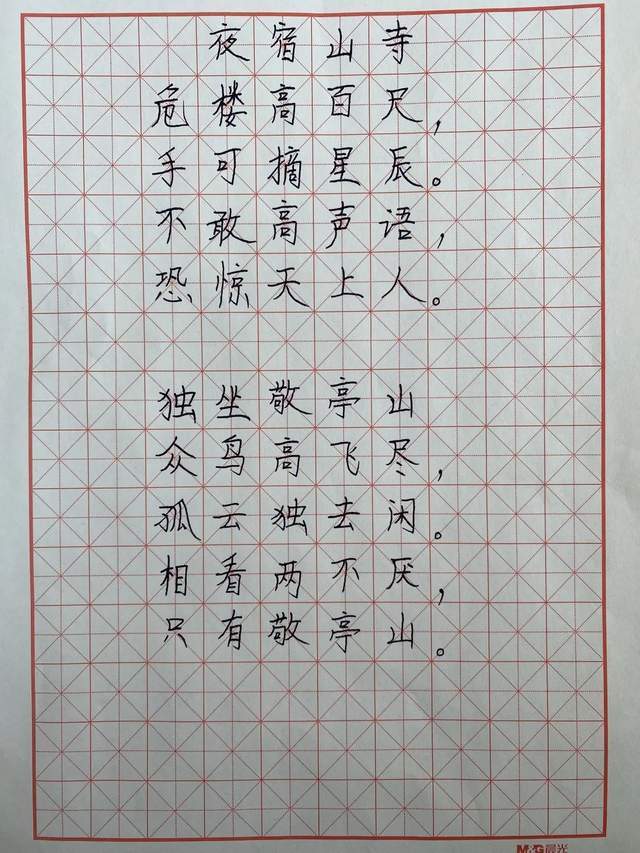 夜宿山寺
危楼高百尺，
手可摘星辰。
不敢高声语，
恐惊天上人。
独坐敬亭山
众鸟高飞尽，
孤云独去闲。
相看两不厌，
只有敬亭山。
M&G晨光